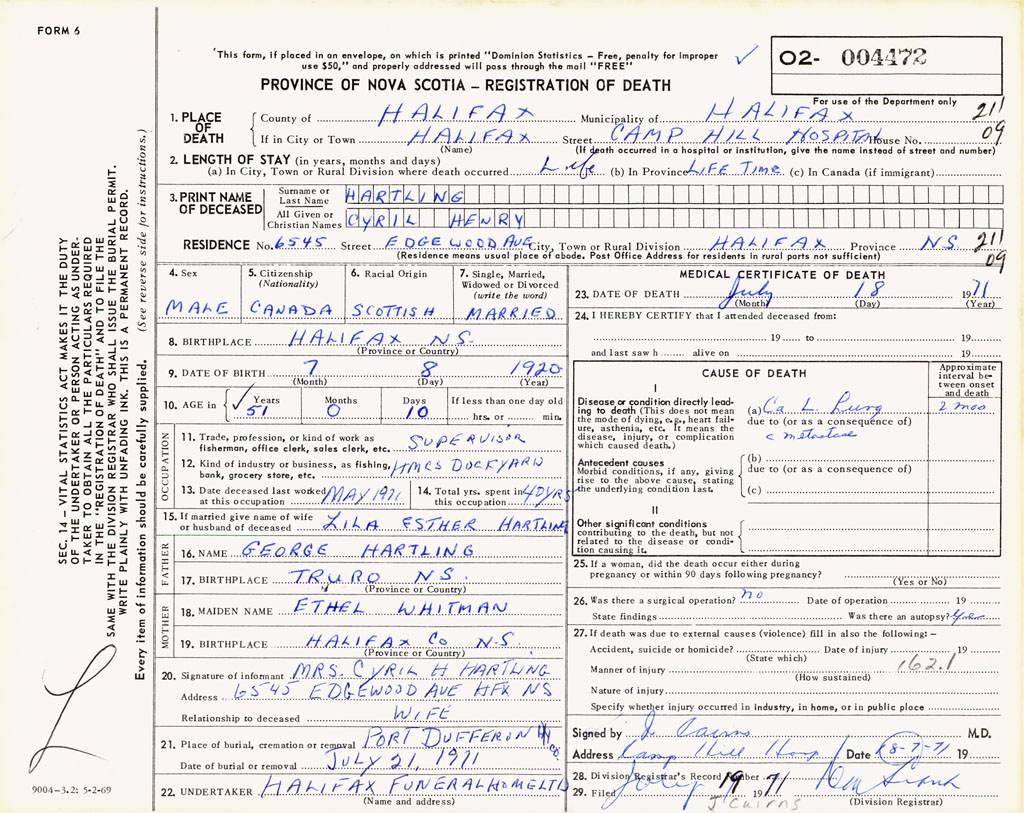 FORM 6
"This form, if placed in an envelope, on which is printed "Dominion Statistics – Free, penalty for improper
use $50," and properly addressed will pass through the mail "FREE"
✓
O2- 004472
PROVINCE OF NOVA SCOTIA – REGISTRATION OF DEATH
For use of the Department only
211
09
1. PLACE OF DEATH
County of HALIFAX Municipality of HALIFAX
If in City or Town HALIFAX Street CAMP HILL HOSPITAL House No.
(Name) (If death occurred in a hospital or institution, give the name instead of street and number)
2. LENGTH OF STAY (in years, months and days)
(a) In City, Town or Rural Division where death occurred Life (b) In Province LIFE TIME (c) In Canada (if immigrant)
3. PRINT NAME OF DECEASED
Surname or Last Name HARTLING
All Given or Christian Names CYRIL HENRY
RESIDENCE No. 6545 Street EDGEWOOD AVE City, Town or Rural Division HALIFAX Province NS 211
09
(Residence means usual place of abode. Post Office Address for residents in rural parts not sufficient)
4. Sex
MALE
5. Citizenship
(Nationality)
CANADA
6. Racial Origin
SCOTTISH
7. Single, Married,
Widowed or Divorced
(write the word)
MARRIED
8. BIRTHPLACE HALIFAX NS.
(Province or Country)
9. DATE OF BIRTH 7 8 1920
(Month) (Day) (Year)
10. AGE in ✓ Years Months Days If less than one day old
51 0 10 hrs. or min.
OCCUPATION
11. Trade, profession, or kind of work as
fisherman, office clerk, sales clerk, etc. SUPERVISOR
12. Kind of industry or business, as fishing,
bank, grocery store, etc. HMCS DOCKYARD
13. Date deceased last worked
at this occupation MAY 1971
14. Total yrs. spent in
this occupation 40YRS
15. If married give name of wife
or husband of deceased LILA ESTHER HARTLING
FATHER
16. NAME GEORGE HARTLING
17. BIRTHPLACE TRURO NS.
(Province or Country)
MOTHER
18. MAIDEN NAME ETHEL WHITMAN
19. BIRTHPLACE HALIFAX CO N.S.
(Province or Country)
20. Signature of informant MRS. CYRIL H HARTLING
Address 6545 EDGEWOOD AVE HFX NS
Relationship to deceased WIFE
21. Place of burial, cremation or removal PORT DUFFERIN CO.
Date of burial or removal JULY 21, 1971
22. UNDERTAKER HALIFAX FUNERAL HOME LTD
(Name and address)
MEDICAL CERTIFICATE OF DEATH
23. DATE OF DEATH July 18 1971
(Month) (Day) (Year)
24. I HEREBY CERTIFY that I attended deceased from:
19 to 19
and last saw h alive on 19
CAUSE OF DEATH
Approximate
interval be-
tween onset
and death
I
Disease or condition directly lead-
ing to death (This does not mean
the mode of dying, e.g., heart fail-
ure, asthenia, etc. It means the
disease, injury, or complication
which caused death.)
(a) Ca L. Lung 2 mos
due to (or as a consequence of)
c metastase
Antecedent causes
Morbid conditions, if any, giving
rise to the above cause, stating
the underlying condition last.
(b)
due to (or as a consequence of)
(c)
II
Other significant conditions
contributing to the death, but not
related to the disease or condi-
tion causing it.
25. If a woman, did the death occur either during
pregnancy or within 90 days following pregnancy?
(Yes or No)
26. Was there a surgical operation? no Date of operation 19
State findings Was there an autopsy?
27. If death was due to external causes (violence) fill in also the following: –
Accident, suicide or homicide? Date of injury 19
(State which)
Manner of injury 162.1
(How sustained)
Nature of injury
Specify whether injury occurred in industry, in home, or in public place
Signed by J. Cairns M.D.
Address Camp Hill Hosp Date 18-7-71 19
28. Division Registrar's Record Number
29. Filed July 19 1971
J Cairns (Division Registrar)
SEC. 14 – VITAL STATISTICS ACT MAKES IT THE DUTY
OF THE UNDERTAKER OR PERSON ACTING AS UNDER-
TAKER TO OBTAIN ALL THE PARTICULARS REQUIRED
IN THE "REGISTRATION OF DEATH" AND TO FILE THE
SAME WITH THE DIVISION REGISTRAR WHO SHALL ISSUE THE BURIAL PERMIT.
WRITE PLAINLY WITH UNFADING INK. THIS IS A PERMANENT RECORD.
Every item of information should be carefully supplied. (See reverse side for instructions.)
9004-3.2: 5-2-69